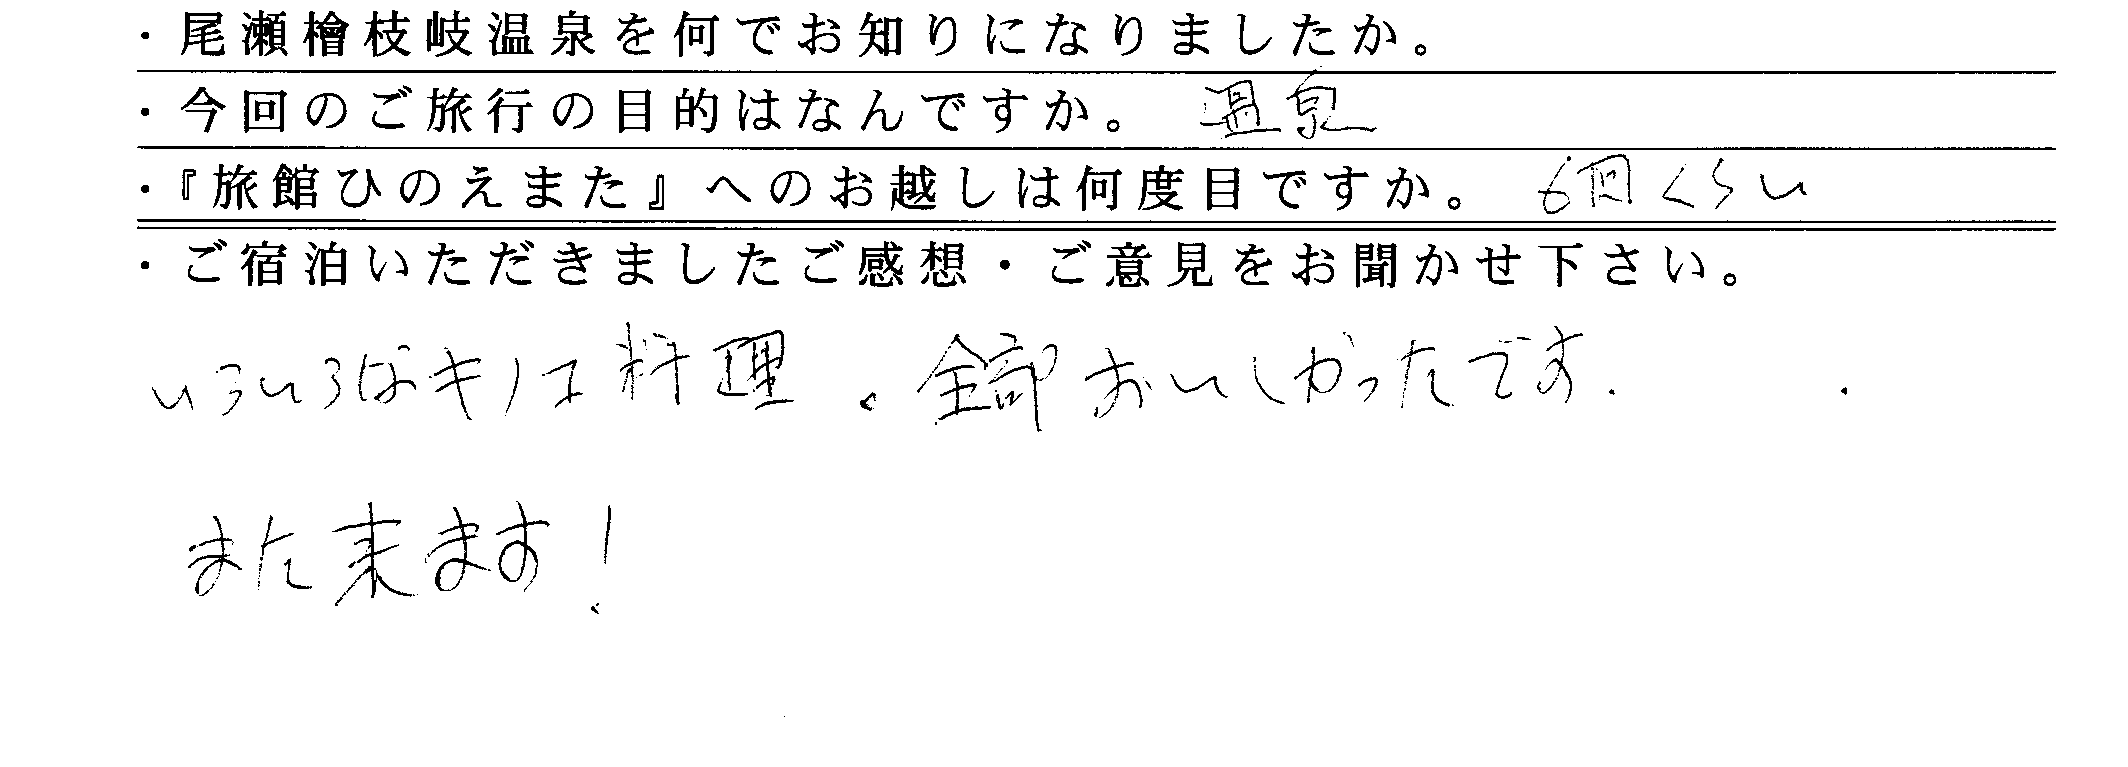 ・尾瀬檜枝岐温泉を何でお知りになりましたか。
・今回のご旅行の目的はなんですか。 温泉
・『旅館ひのえまた』へのお越しは何度目ですか。 6回くらい
・ご宿泊いただきましたご感想・ご意見をお聞かせ下さい。
いろいろなキノコ料理。全部おいしかったです.
また来ます!